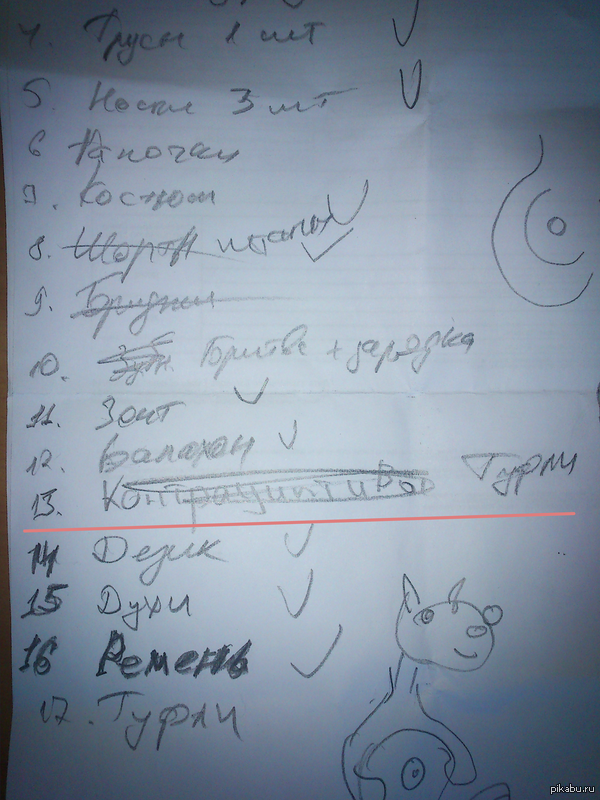 4. Трусы 1 шт
5. Носки 3 шт
6 Тапочки
7. Костюм
8. Шорты штаны
9. Бриджи
10. Зуб. Бритва + зарядка
11. Зонт
12. Балахон
13. Контрацептивы Туфли
14 Дезик
15 Духи
16 Ремень
17. Туфли
pikabu.ru